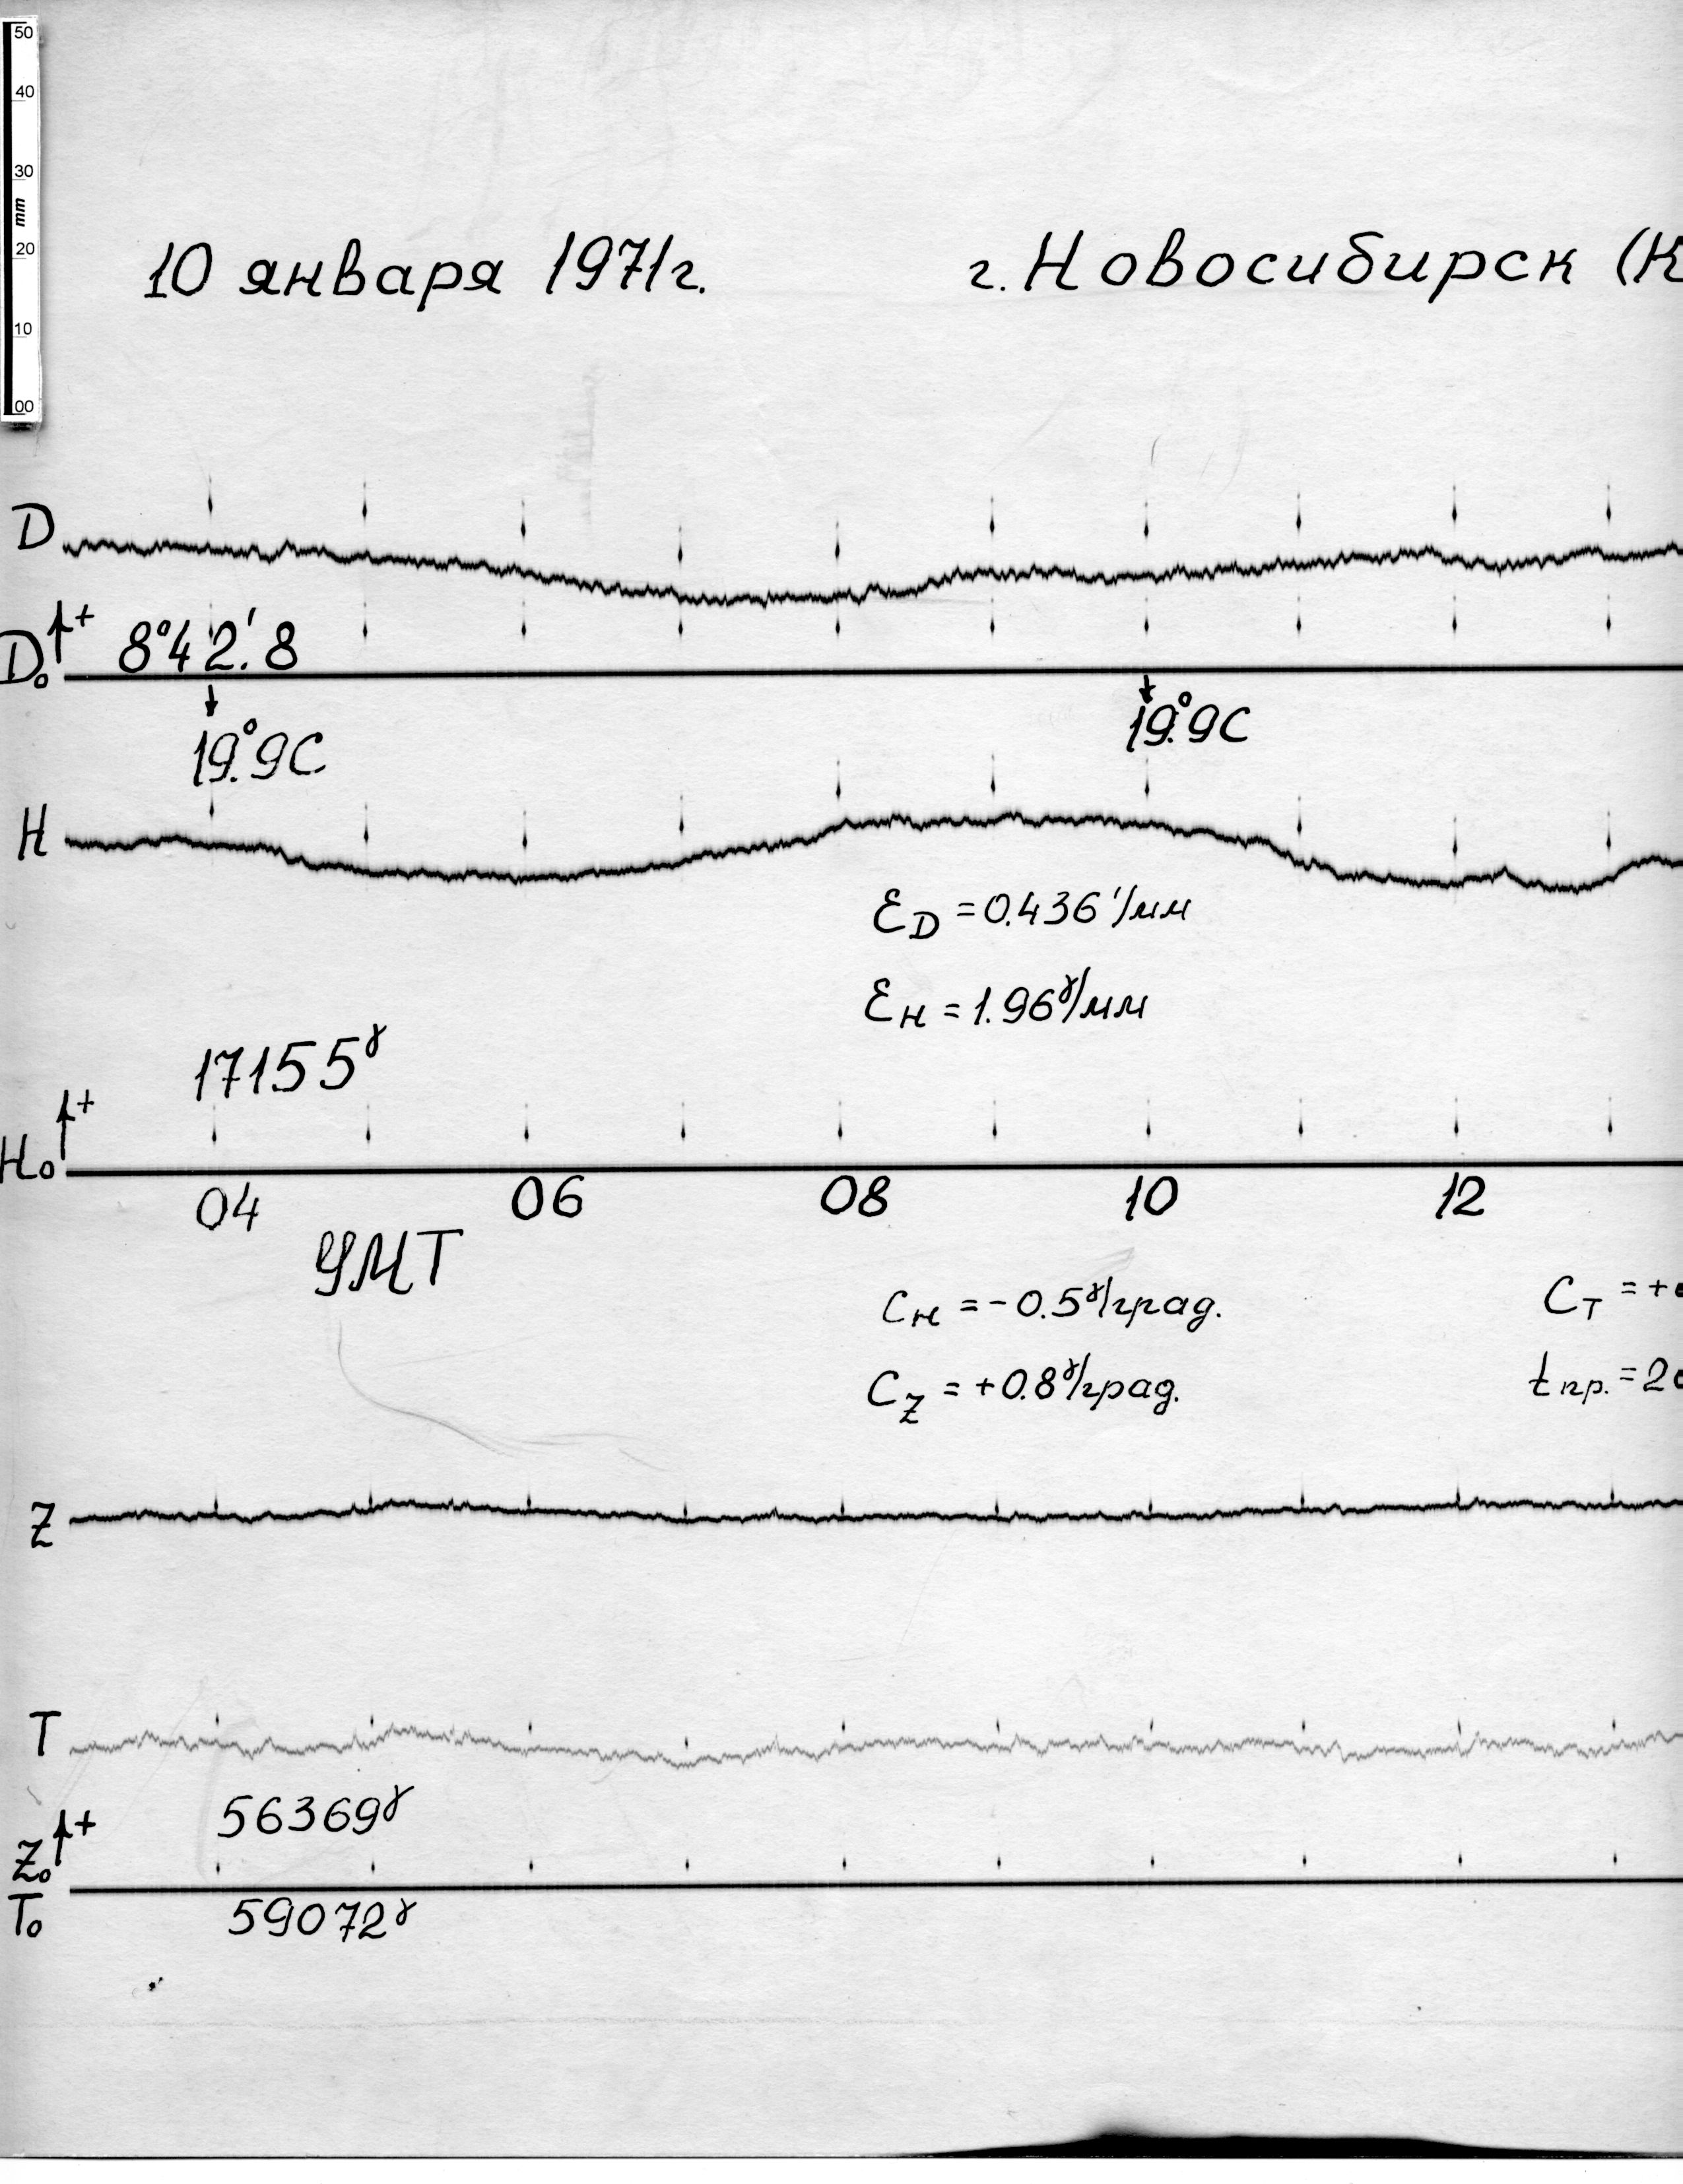 50
40
30
mm
20
10
00
10 января 1971г. г. Новосибирск (К
D
D₀ + 8°42.'8
19.°9С 19.°9С
H
ℰD = 0.436'/мм
ℰH = 1.96γ/мм
17155γ
+
H₀
04 06 08 10 12
УМТ
CH = -0.5γ/град. CT = +
CZ = +0.8γ/град. tпр. = 2
Z
T
56369γ
+
Z₀
T₀ 59072γ